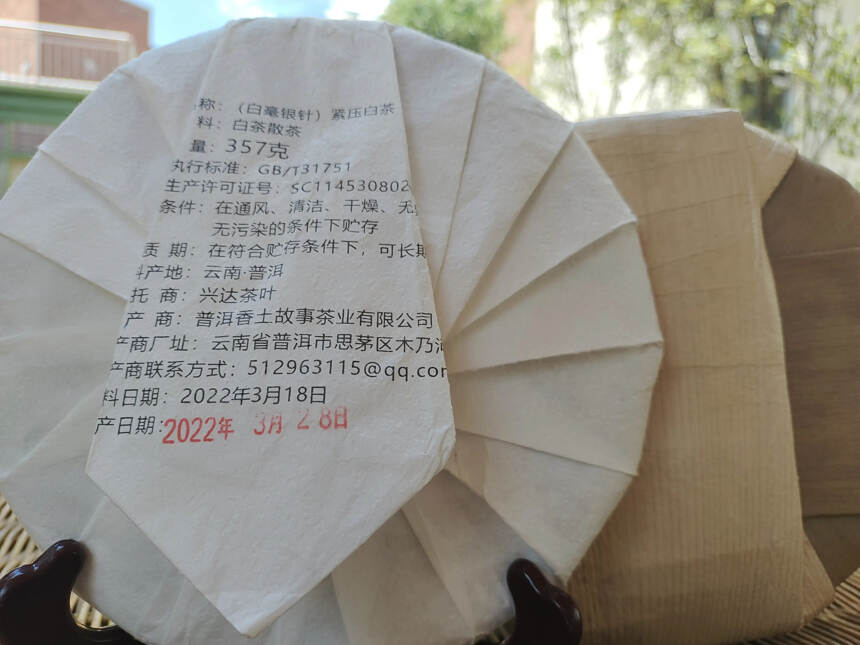 称：（白毫银针）紧压白茶
料：白茶散茶
量：357克
执行标准：GB/T31751
生产许可证号：SC114530802
条件：在通风、清洁、干燥、无
无污染的条件下贮存
质 期：在符合贮存条件下，可长期
料产地：云南·普洱
托 商：兴达茶叶
产 商：普洱香土故事茶业有限公司
产商厂址：云南省普洱市思茅区木乃河
产商联系方式：512963115@qq.com
料日期：2022年3月18日
产日期：2022年 3月 28日